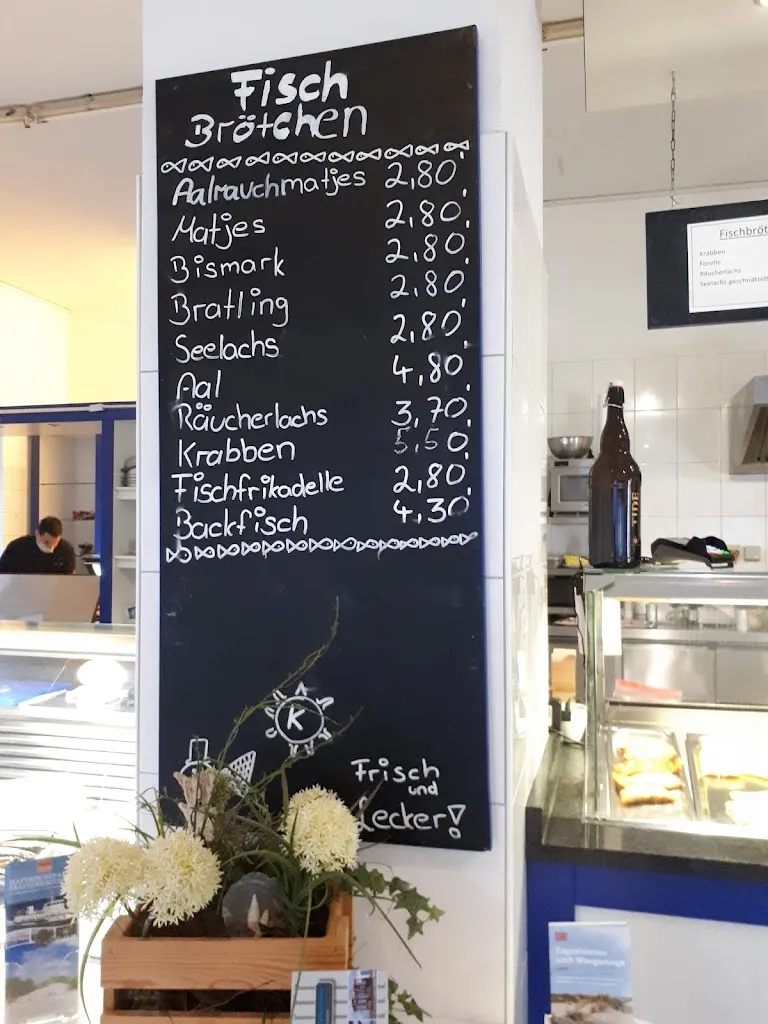 Fisch
Brötchen
Aalrauchmatjes 2,80
Matjes 2,80
Bismark 2,80
Bratling 2,80
Seelachs 2,80
Aal 4,80
Räucherlachs 3,70
Krabben 5,50
Fischfrikadelle 2,80
Backfisch 4,30
K
Frisch
und
Lecker!
Fischbröt
Krabben
Forelle
Räucherlachs
Seelachs geschnätzelt
TIDE
Tagesfahrten
nach Wangerooge